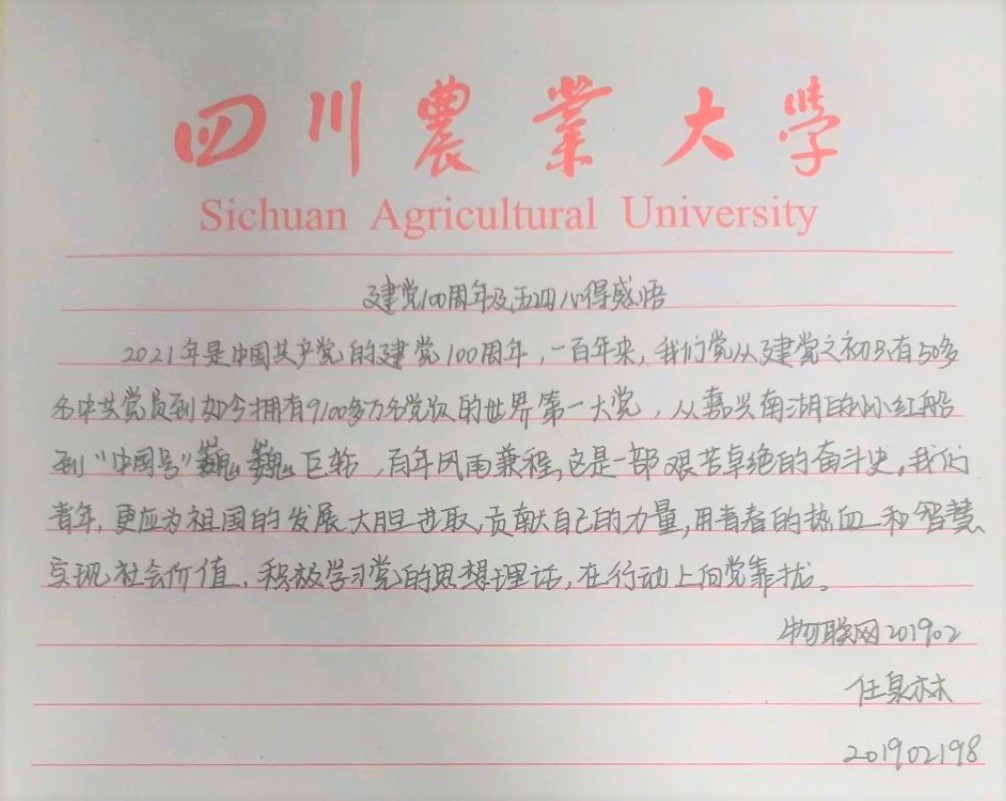 四川農業大學
Sichuan Agricultural University
建党100周年及五四心得感悟
2021年是中国共产党的建党100周年,一百年来,我们党从建党之初只有50多
名中共党员到如今拥有9100多万名党员的世界第一大党,从嘉兴南湖的小红船
到"中国号"巍巍巨轮,百年风雨兼程,这是一部艰苦卓绝的奋斗史。我们
青年,更应为祖国的发展大胆进取,贡献自己的力量,用青春的热血和智慧
实现社会价值,积极学习党的思想理论,在行动上向党靠拢。
物联网201902
任泉林
201902198